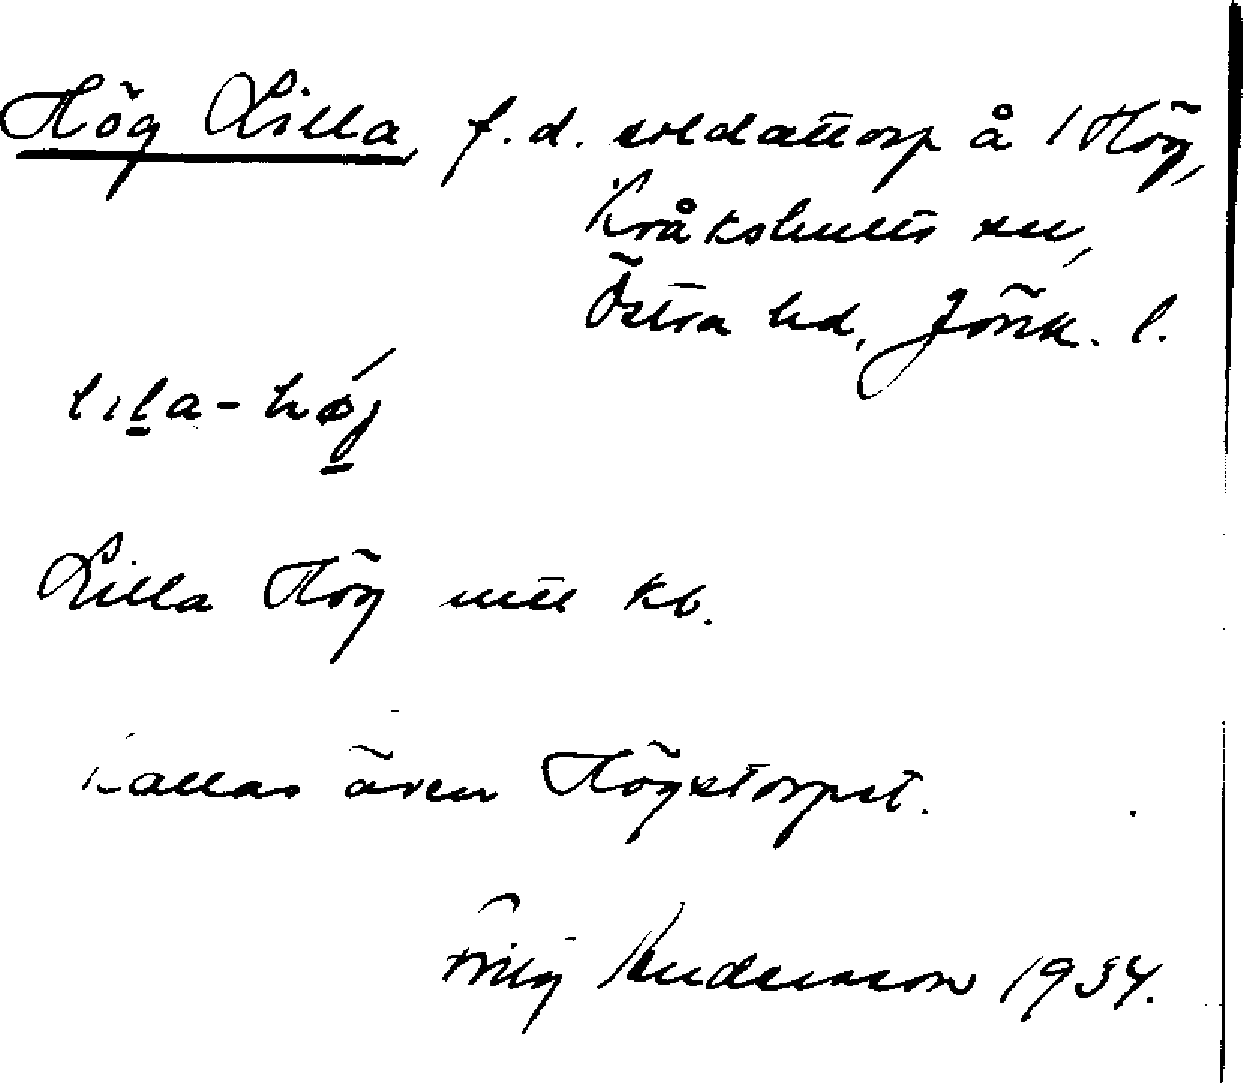 Hög Lilla, f.d. soldattorp å 1 Hög,
Kråkshults sn,
Östra hd, Jönk. l.
lila-høj
Lilla Hög mtl kb.
Kallas även Högstorpet.
Frity Andersson 1934.